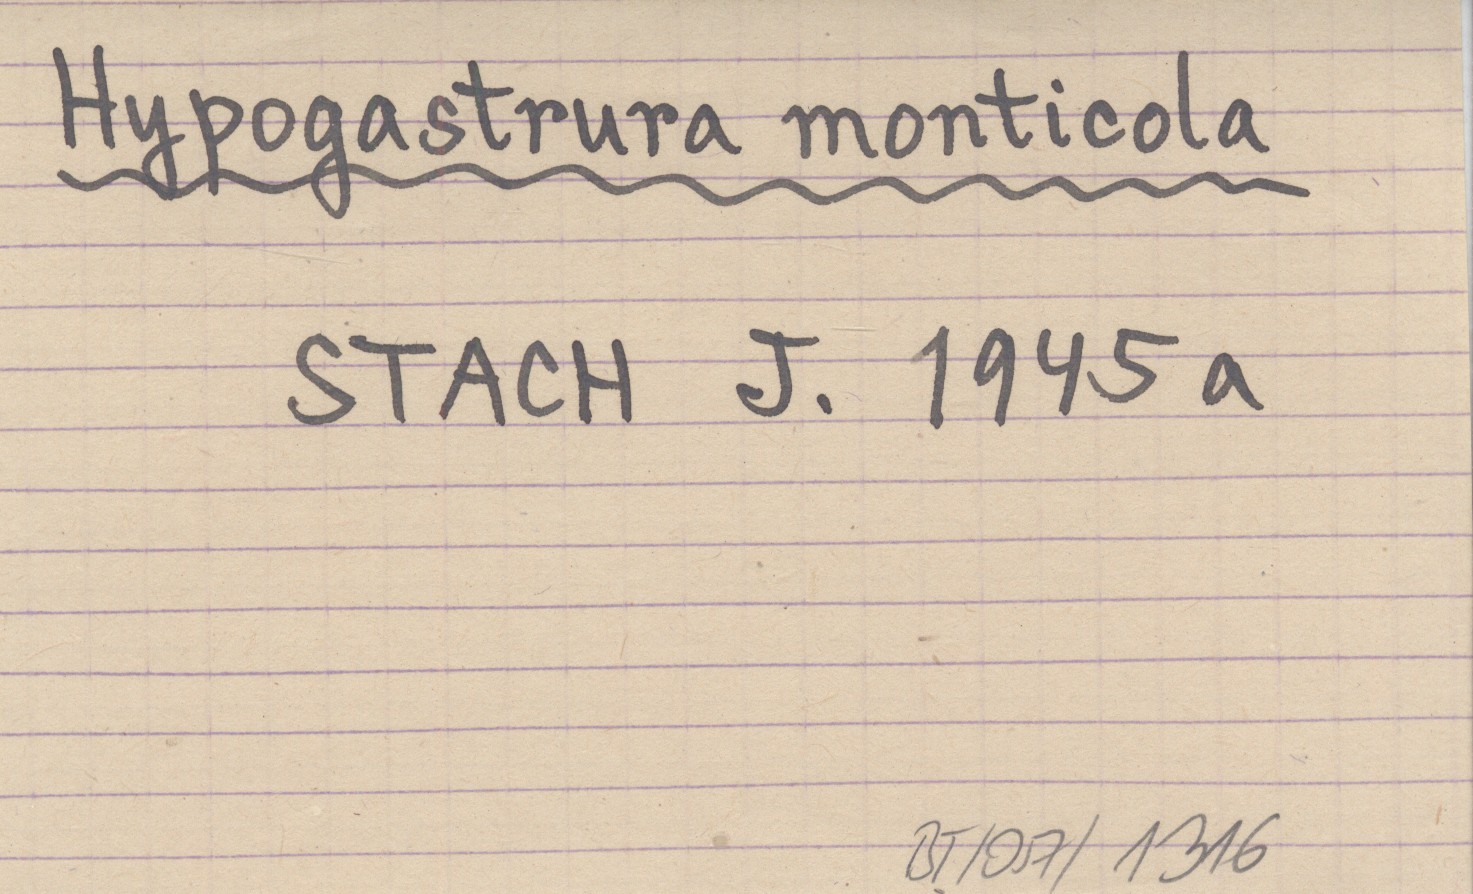 Hypogastrura monticola
STACH J. 1945a
BT/057/1316